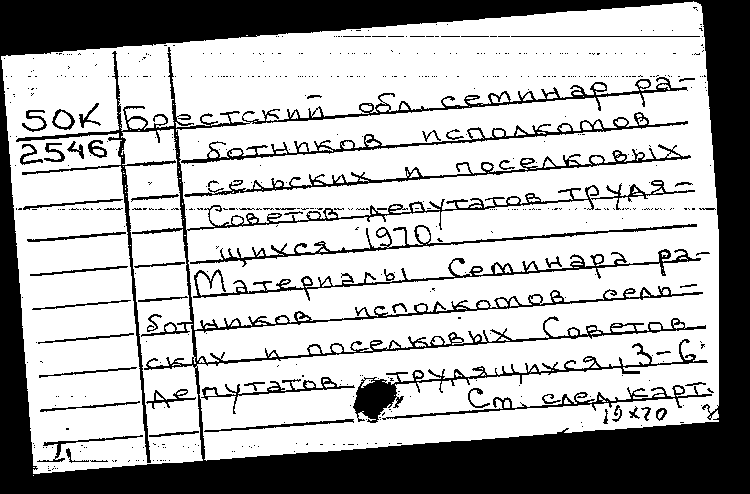 50К Брестский обл. семинар ра-
25467 ботников исполкомов
сельских и поселковых
Советов депутатов трудя-
щихся. 1970.
Материалы Семинара ра-
ботников исполкомов сель-
ских и поселковых Советов
депутатов трудящихся. [3-6
См. след. карт.
19x70